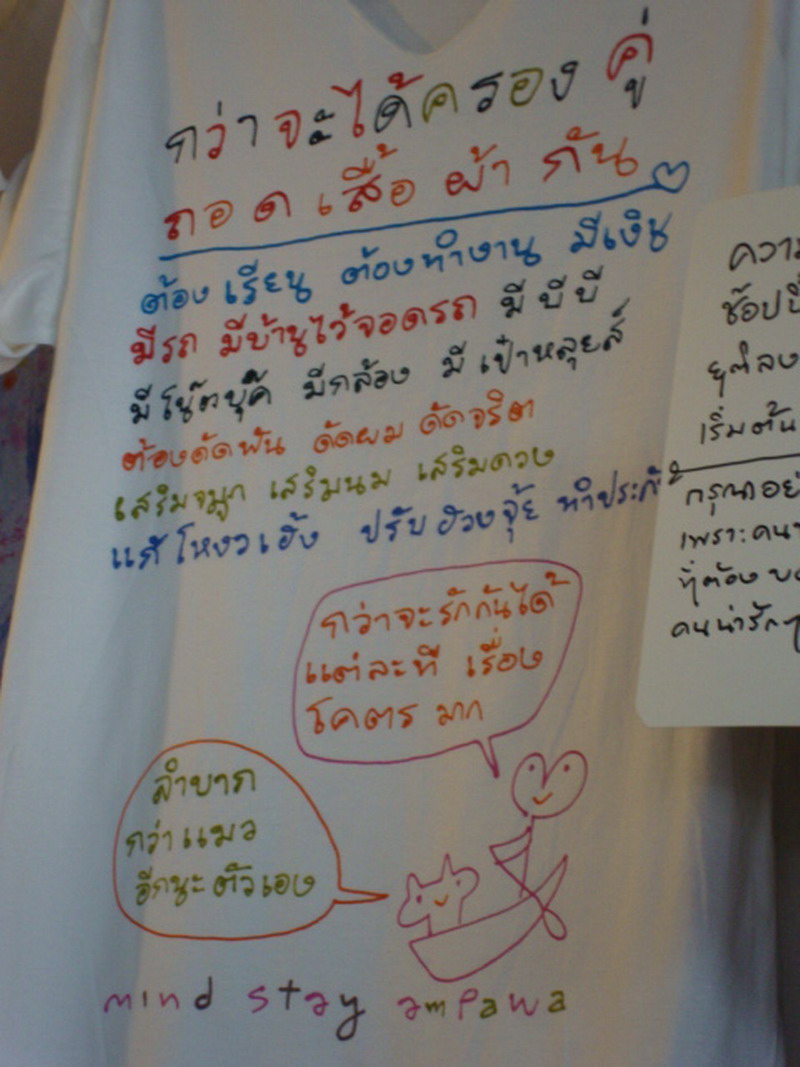 กว่าจะได้ครองคู่
ถอดเสื้อผ้ากัน
ต้องเรียน ต้องทำงาน มีเงิน
มีรถ มีบ้านไว้จอดรถ มีบีบี
มีโน๊ตบุ๊ค มีกล้อง มีเป๋าหลุยส์
ต้องดัดฟัน ดัดผม ดัดจริต
เสริมจมูก เสริมนม เสริมดวง
แก้โหงวเฮ้ง ปรับฮวงจุ้ย ทำประกั
กว่าจะรักกันได้
แต่ละที เรื่อง
โคตรมาก
ลำบาก
กว่าแมว
อีกนะตัวเอง
mind stay ampawa
ความ
ช๊อปปิ้
ยุติลง
เริ่มต้น
กรุณาอย่
เพราะคน
ที่ต้อง
คนน่ารัก